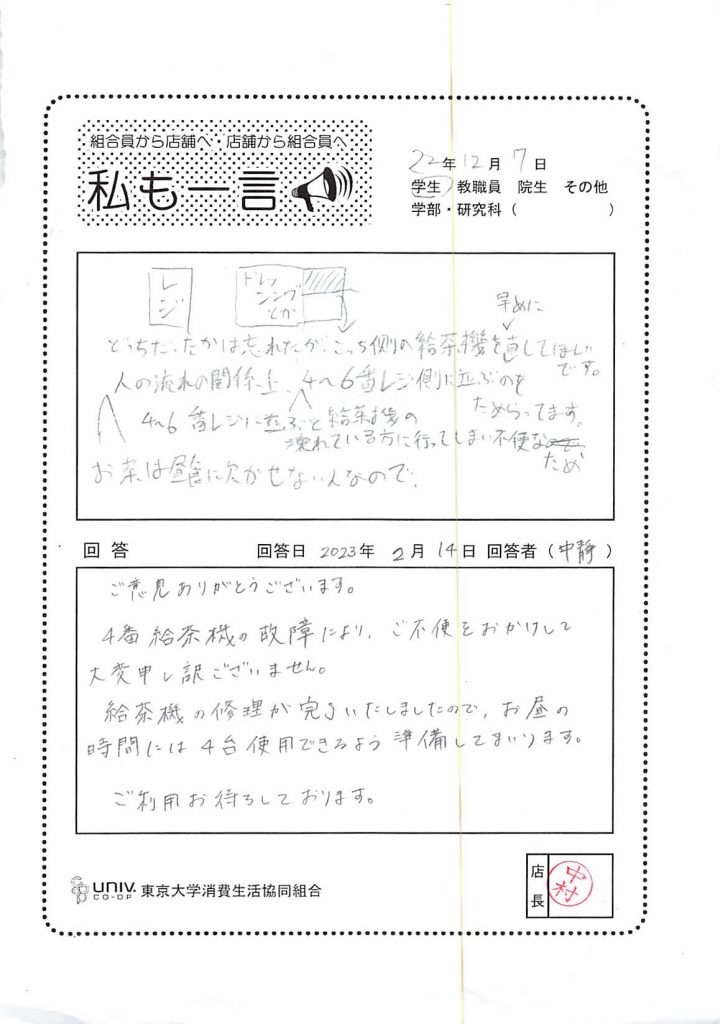 組合員から店舗へ・店舗から組合員へ
私も一言
22年12月7日
学生 教職員 院生 その他
学部・研究科（ ）
レジ
ドレッシングとか
早めに
どっちだったかは忘れたが、こっち側の給茶機を直してほしいです。
人の流れの関係上、4〜6番レジ側に並ぶのをためらってます。
4〜6番レジに並ぶと給茶機の
壊れている方に行ってしまい不便なため
お茶は昼食に欠かせない人なので、
回答 回答日 2023年 2月 14日 回答者（中静）
ご意見ありがとうございます。
4番給茶機の故障により、ご不便をおかけして
大変申し訳ございません。
給茶機の修理が完了いたしましたので、お昼の
時間には4台使用できるよう準備してまいります。
ご利用お待ちしております。
UNIV. CO-OP 東京大学消費生活協同組合
店長 中村